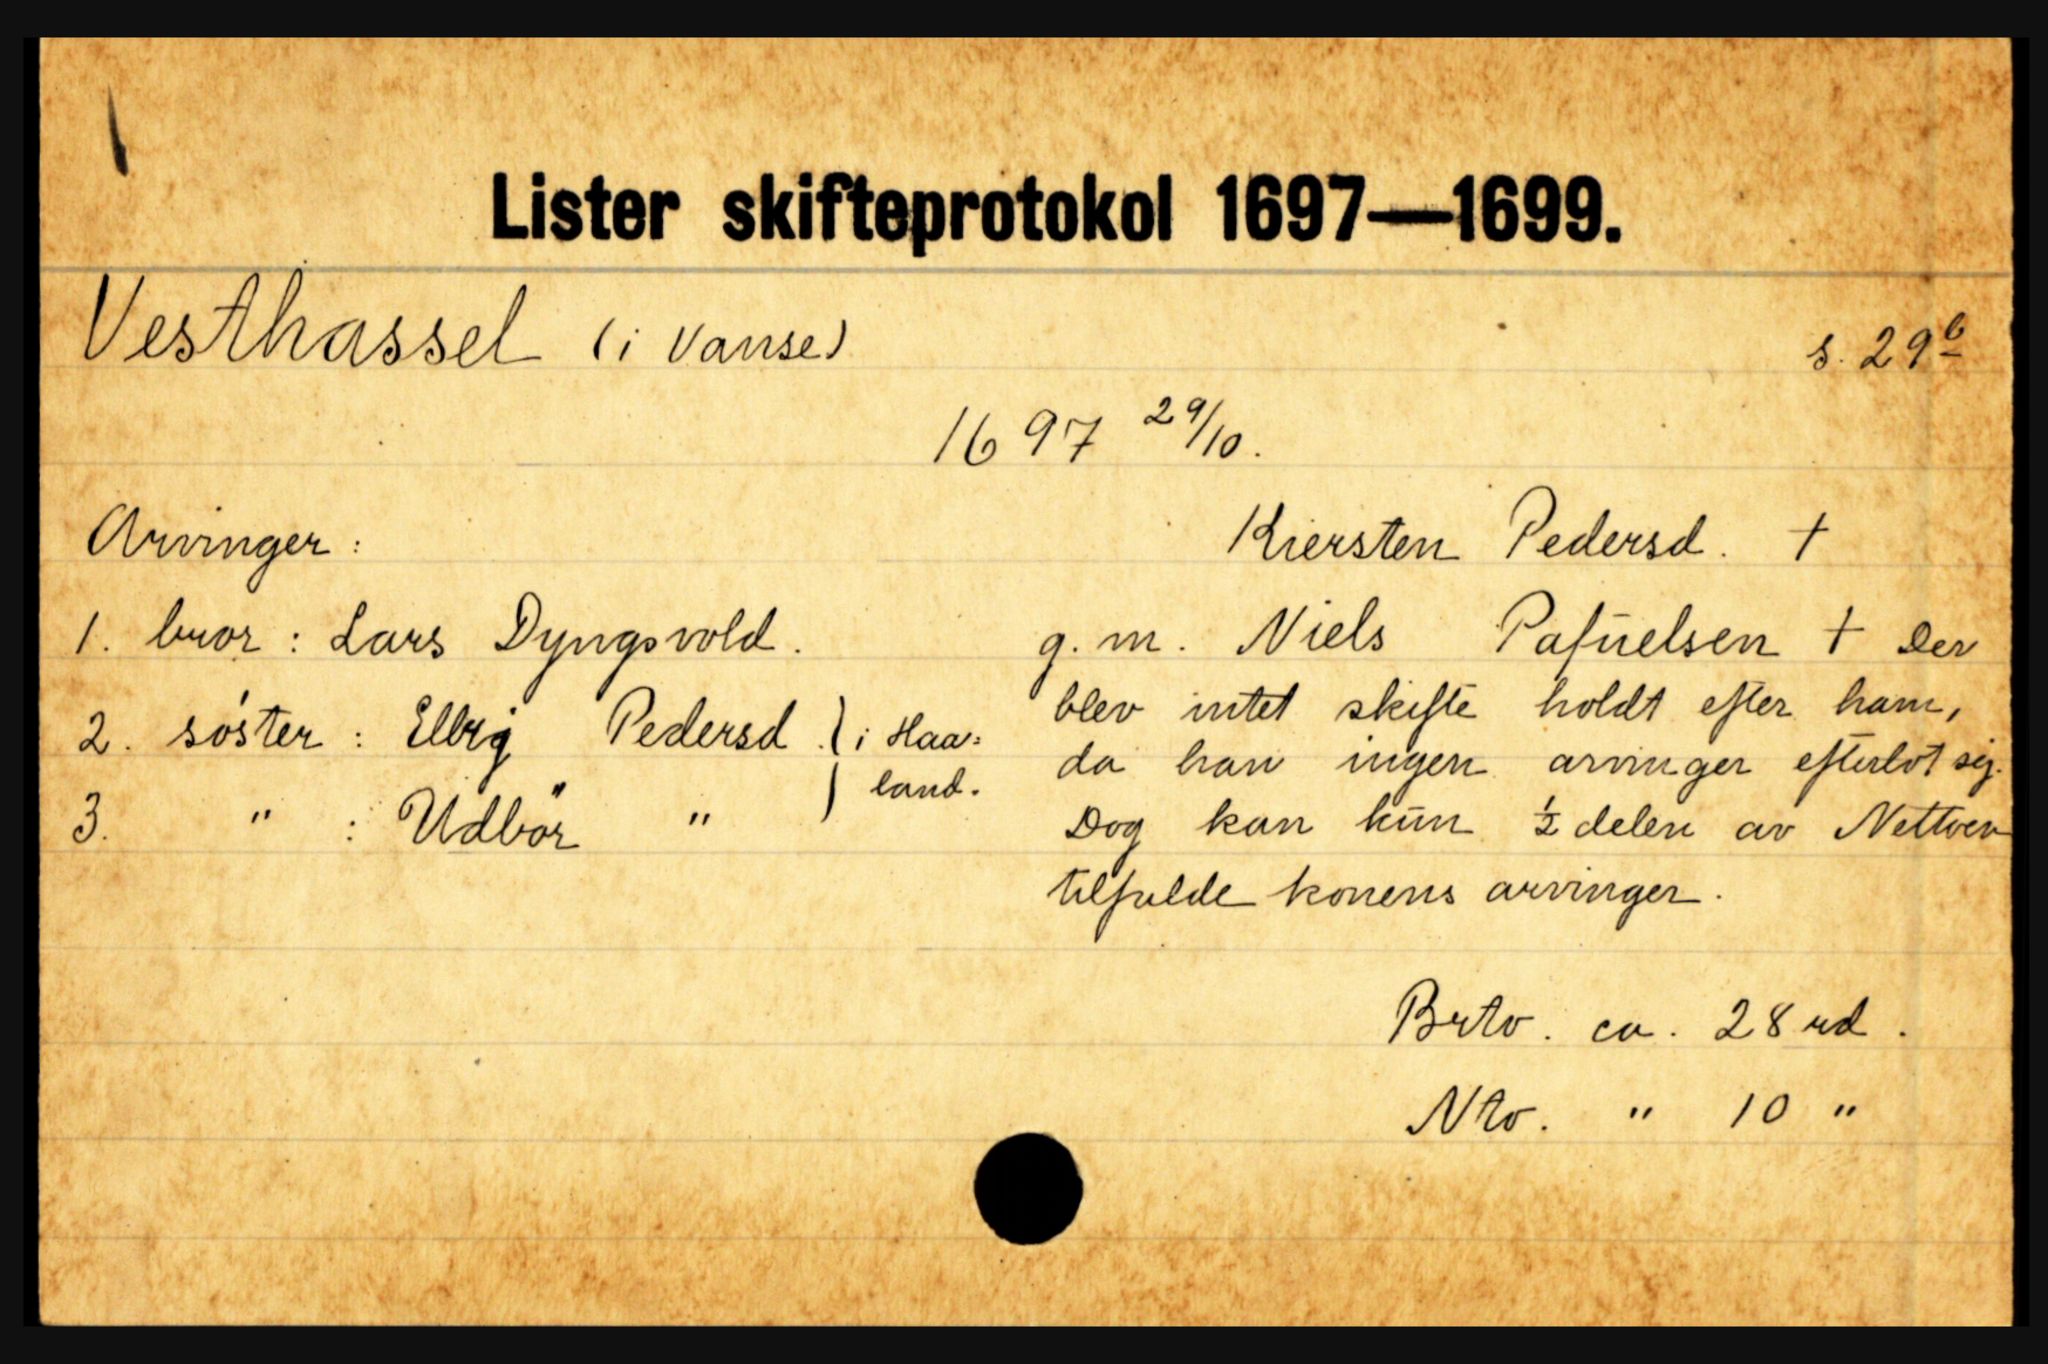 Lister skifteprotokol 1697—1699.
Vesthassel (i Vanse) s. 29b
1697 29/10.
Arvinger:
1. bror: Lars Dyngsvold.
2. søster: Elbrig Pedersd. } i Haa=
3. " : Udbør " } land.
Kiersten Pedersd. †
g. m. Niels Pafuelsen † Der
blev intet skifte holdt efter ham,
da han ingen arvinger efterlot sig.
Dog kan kun ½ delen av Nettoen
tilfalde konens arvinger.
Brto. ca. 28 rd.
Nto. " 10 "